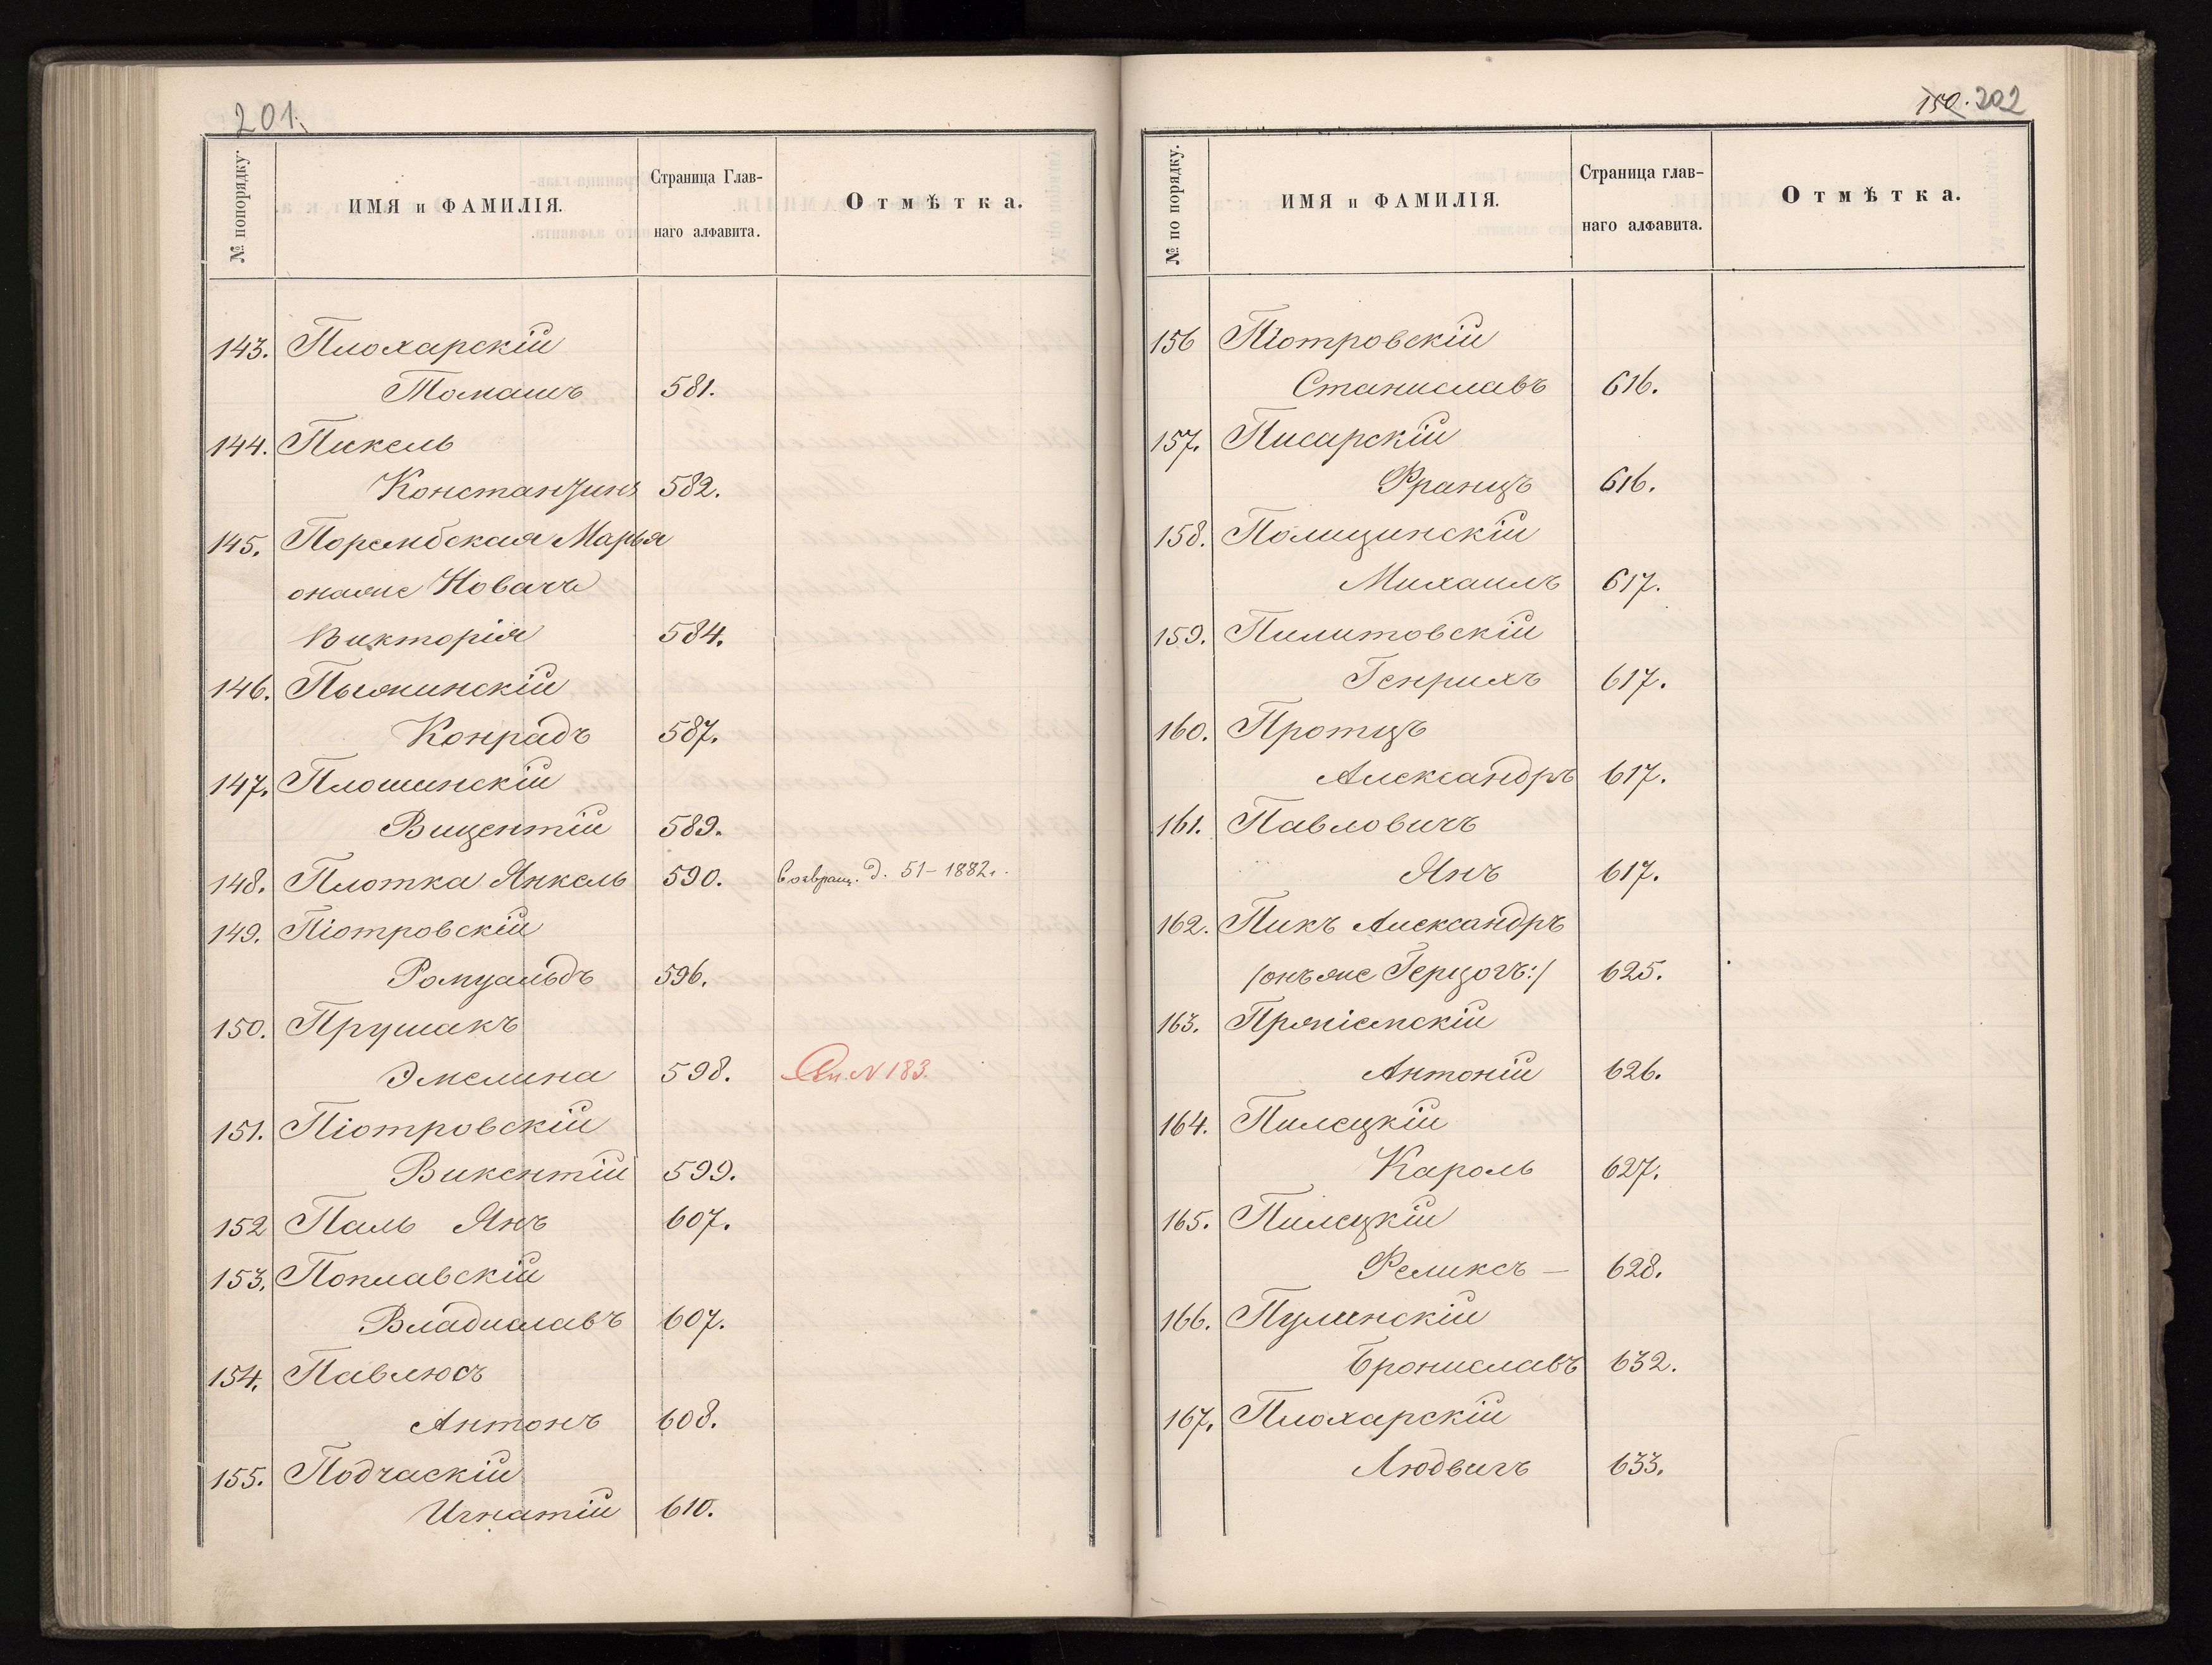 201.
№ попорядку.
ИМЯ и ФАМИЛІЯ.
Страница Глав-
наго алфавита.
Отмѣтка.
143. Плохарскій
Томашъ 581.
144. Пикель
Константинъ 582.
145. Порембская Марья
онаже Новачъ
Викторія 584.
146. Пыжинскій
Конрадъ 587.
147. Плошинскій
Вицентій 589.
148. Плотка Янкель 590. Возвращ. д. 51-1882.
149. Піотровскій
Ромуальдъ 596.
150. Прушакъ
Эмелина 598. № 183.
151. Піотровскій
Викентій 599.
152 Паль Янъ 607.
153. Поплавскій
Владиславъ 607.
154. Павлюсъ
Антонъ 608.
155. Подчаскій
Игнатій 610.
150. 202
№ по порядку.
ИМЯ и ФАМИЛІЯ.
Страница глав-
наго алфавита.
Отмѣтка.
156 Піотровскій
Станиславъ 616.
157. Писарскій
Францъ 616.
158. Полицинскій
Михаилъ 617.
159. Пилитовскій
Генрихъ 617.
160. Протцъ
Александръ 617.
161. Павловичъ
Янъ 617.
162. Пикъ Александръ
/онъ же Герцогъ:/ 625.
163.
Антоній 626.
164. Пилецкій
Кароль 627.
165. Пилецкій
Феликсъ — 628.
166. Пулинскій
Брониславъ 632.
167. Плохарскій
Людвигъ 633.